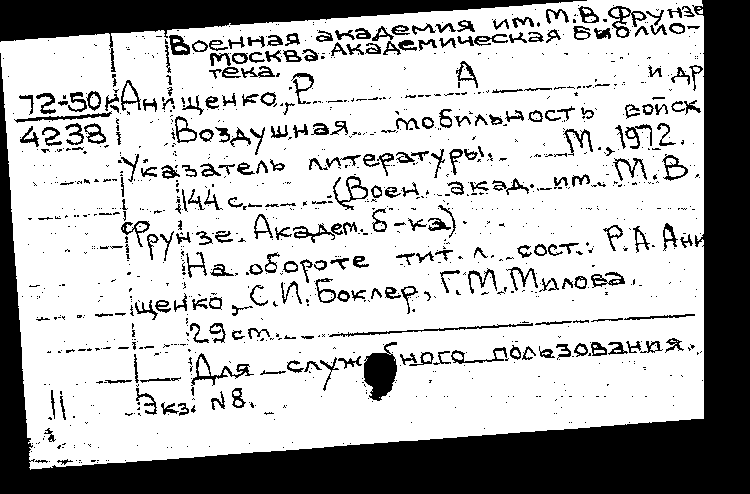 Военная академия им. М.В. Фрунзе
Москва. Академическая библио-
тека.
72-50к
4238
Анищенко, Р А и др
Воздушная мобильность войск
Указатель литературы. М., 1972.
144 с. (Воен. акад. им. М.В.
Фрунзе. Академ. б-ка).
На обороте тит. л. сост.: Р.А. Ани
щенко, С.И. Боклер, Г.М. Милова.
29 см.
Для служебного пользования.
11 Экз. N8.